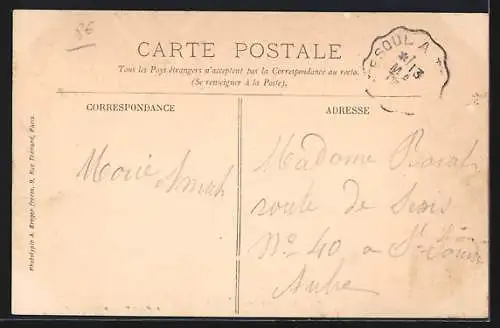 86
CARTE POSTALE
Tous les Pays étrangers n'acceptent pas la Correspondance au recto.
(Se renseigner à la Poste).
CORRESPONDANCE
ADRESSE
ESOUL A
13
Marie
Madame
route de
No 40 a St
Aube
Phototypie A. Breger frères, 9, Rue Thénard, Paris.